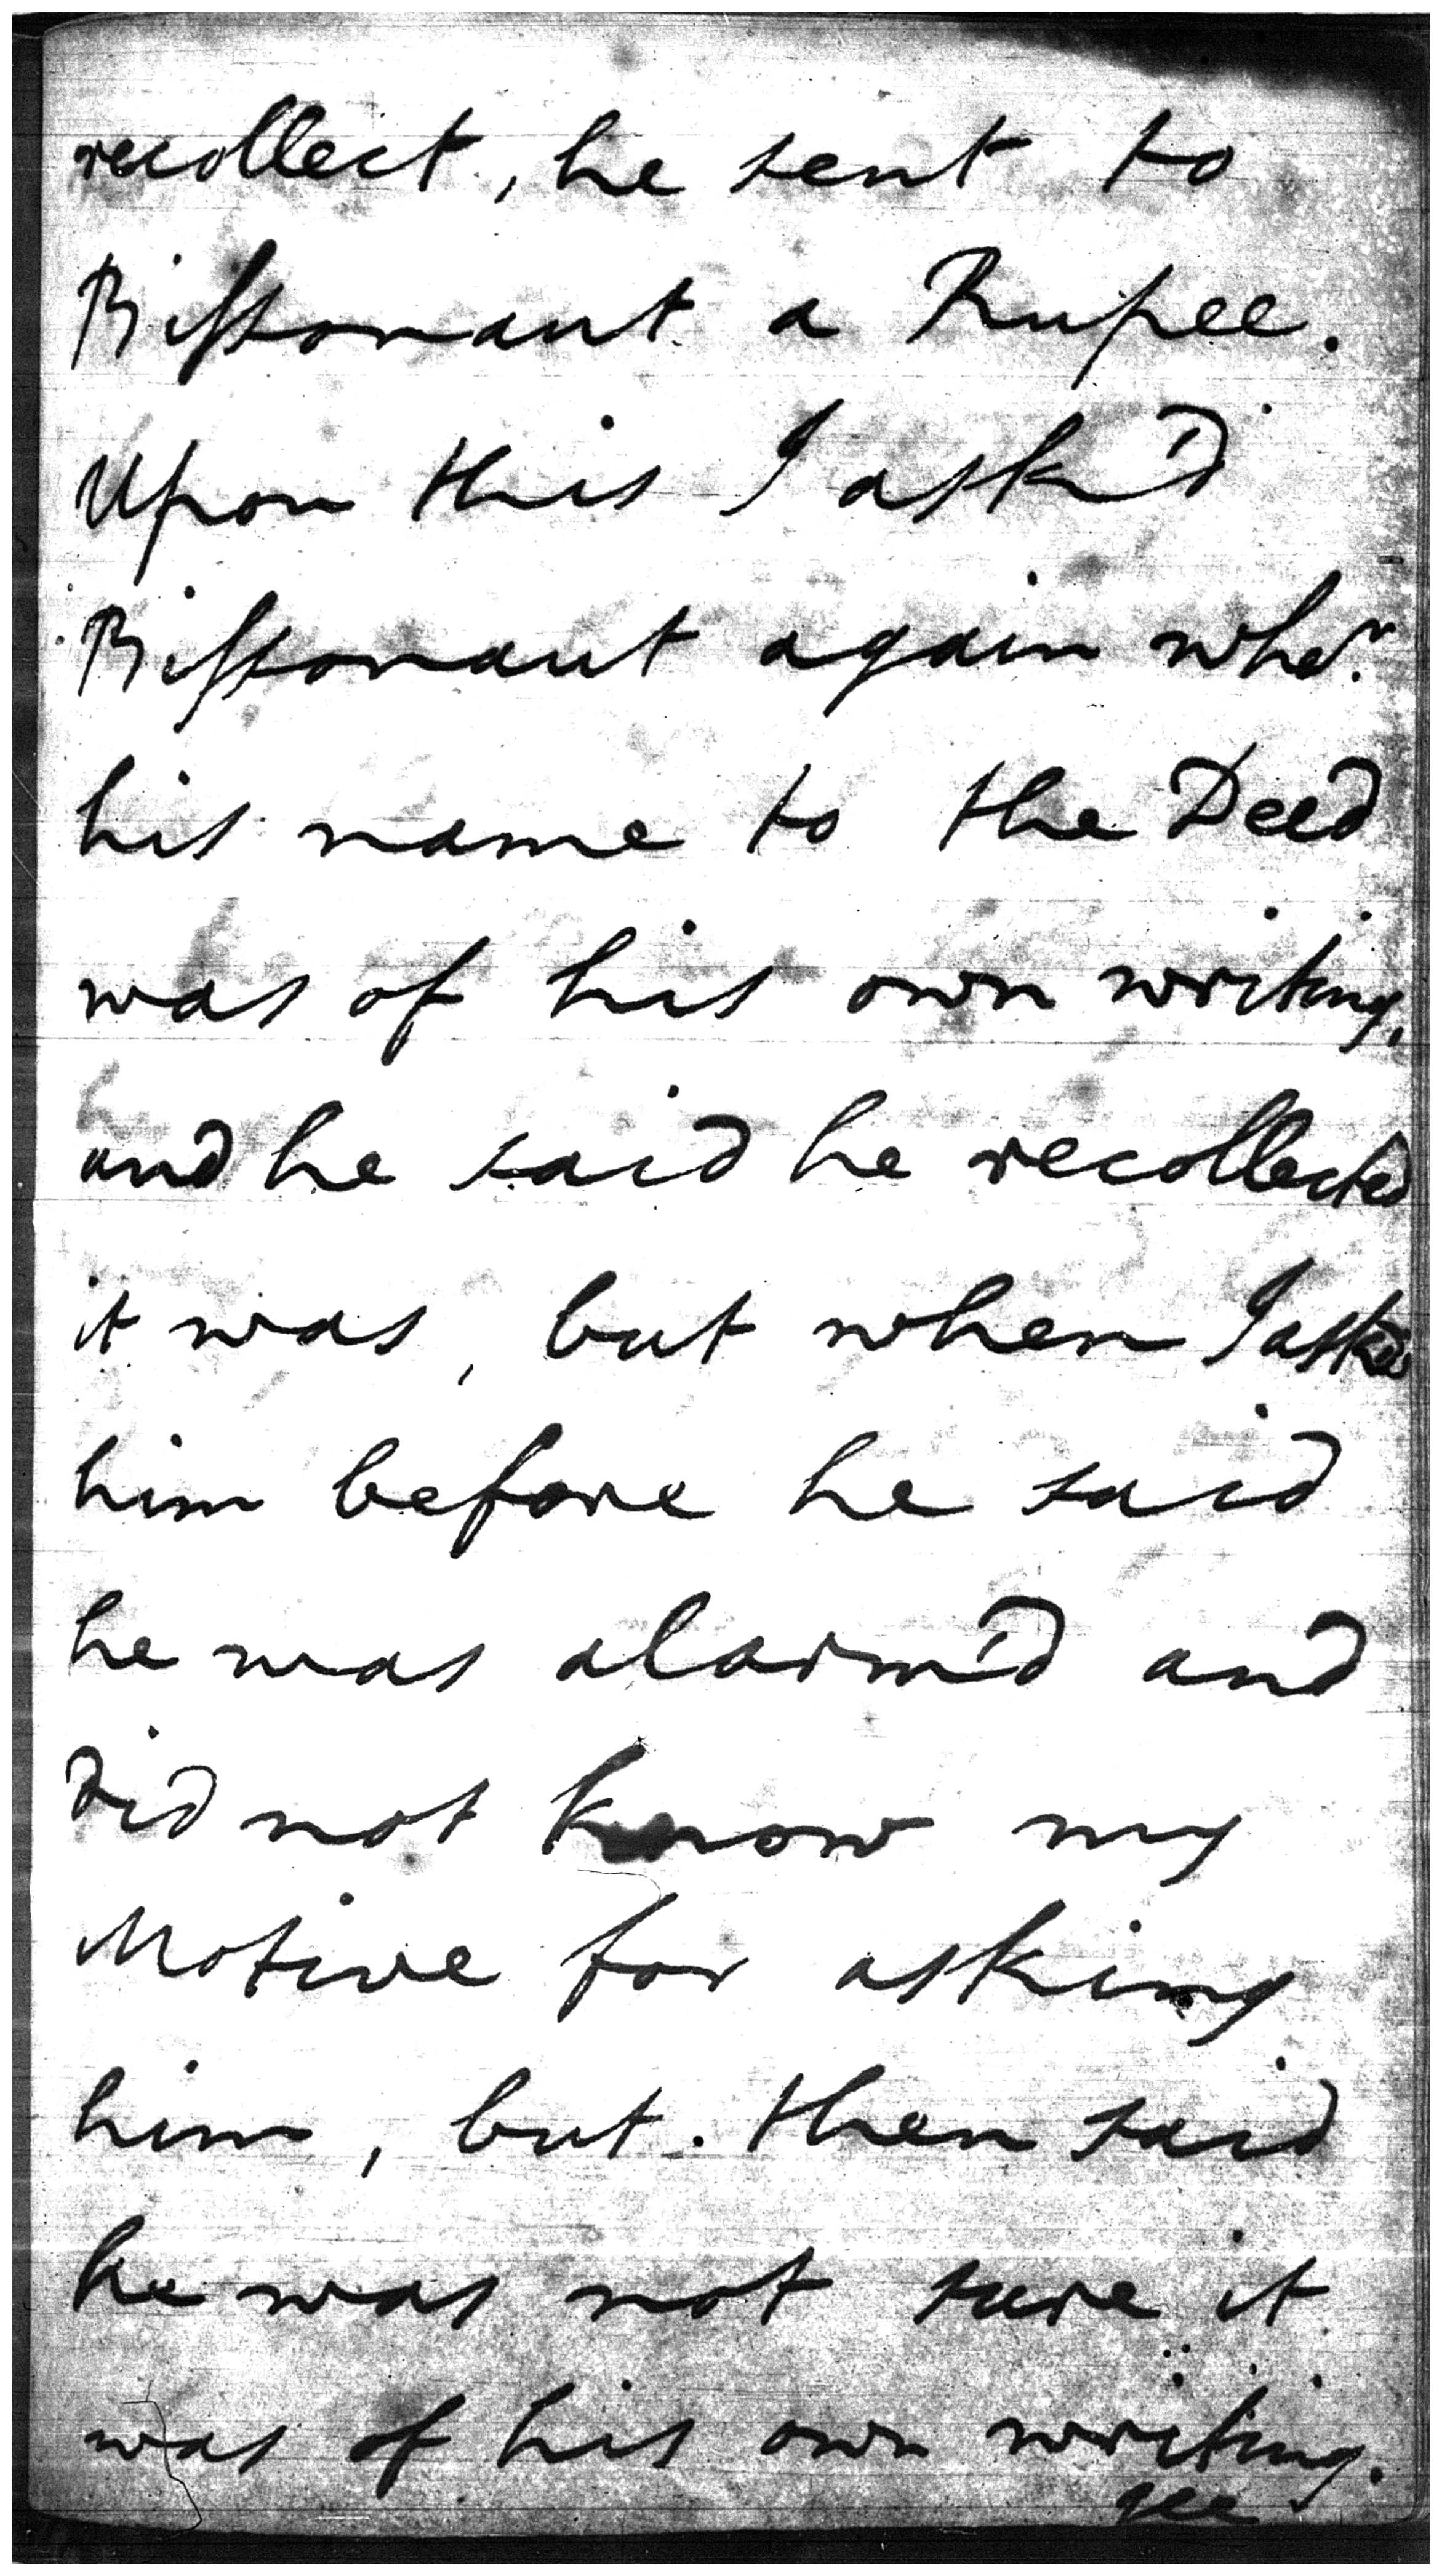 recollect, he sent to
Bissonaut a Rupee.
Upon this I ask'd
Bissonaut again whe.r
his name to the Deed
was of his own writing,
and he said he recollected
it was, but when I ask'd
him before he said
he was alarm'd and
did not know my
Motive for asking
him, but then said
he was not sure it
was of his own writing.